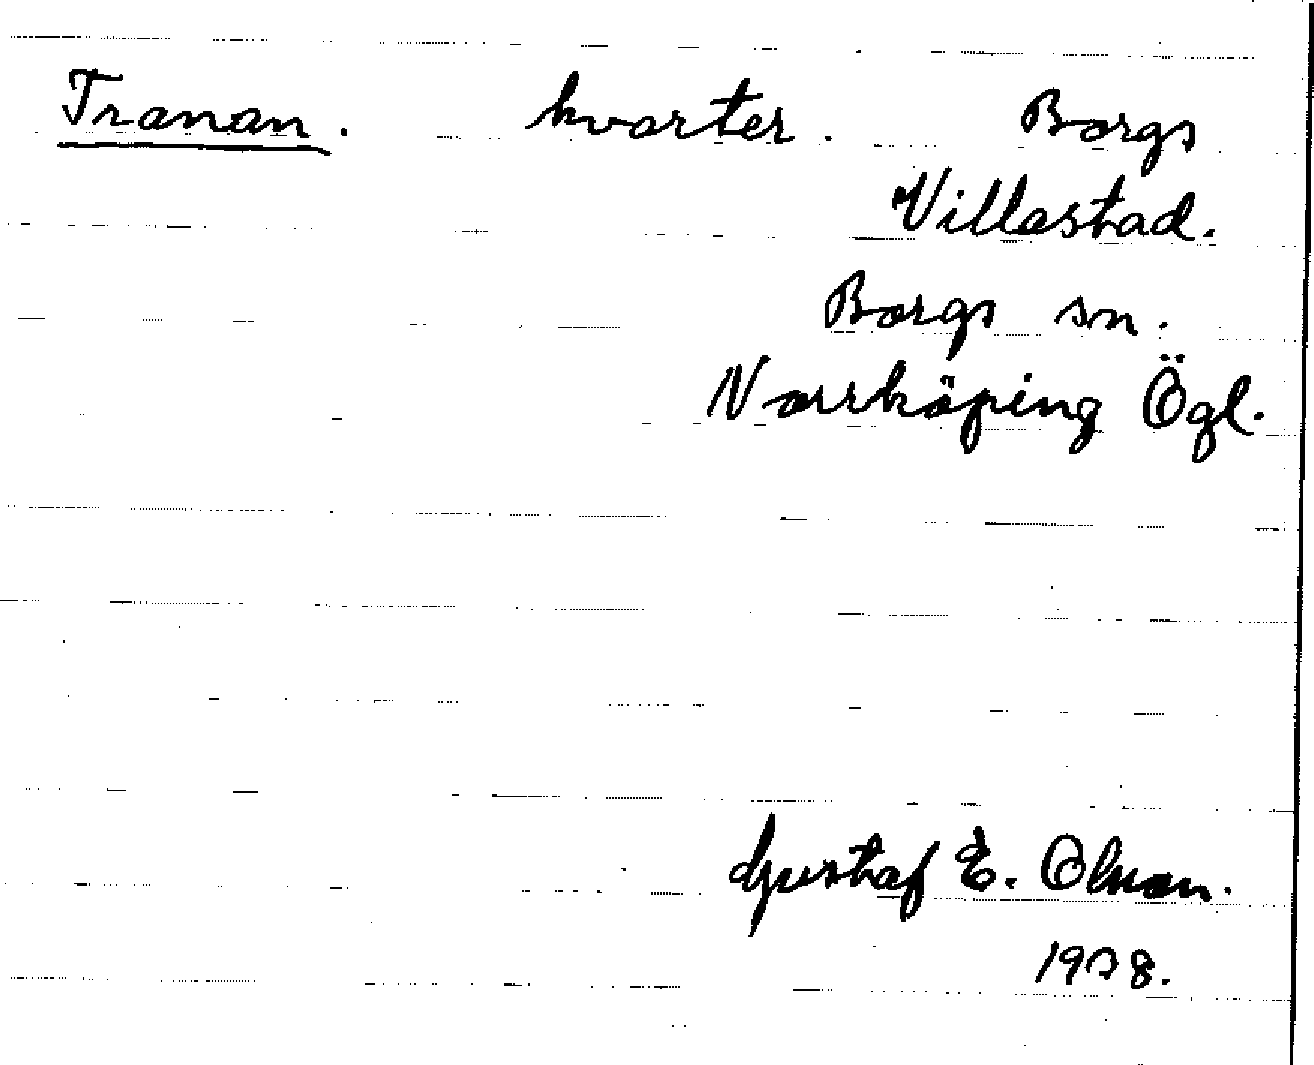 Tranan. kvarter. Borgs
Villastad.
Borgs sn.
Norrköping Ögl.
Gustaf E. Olsson.
1938.